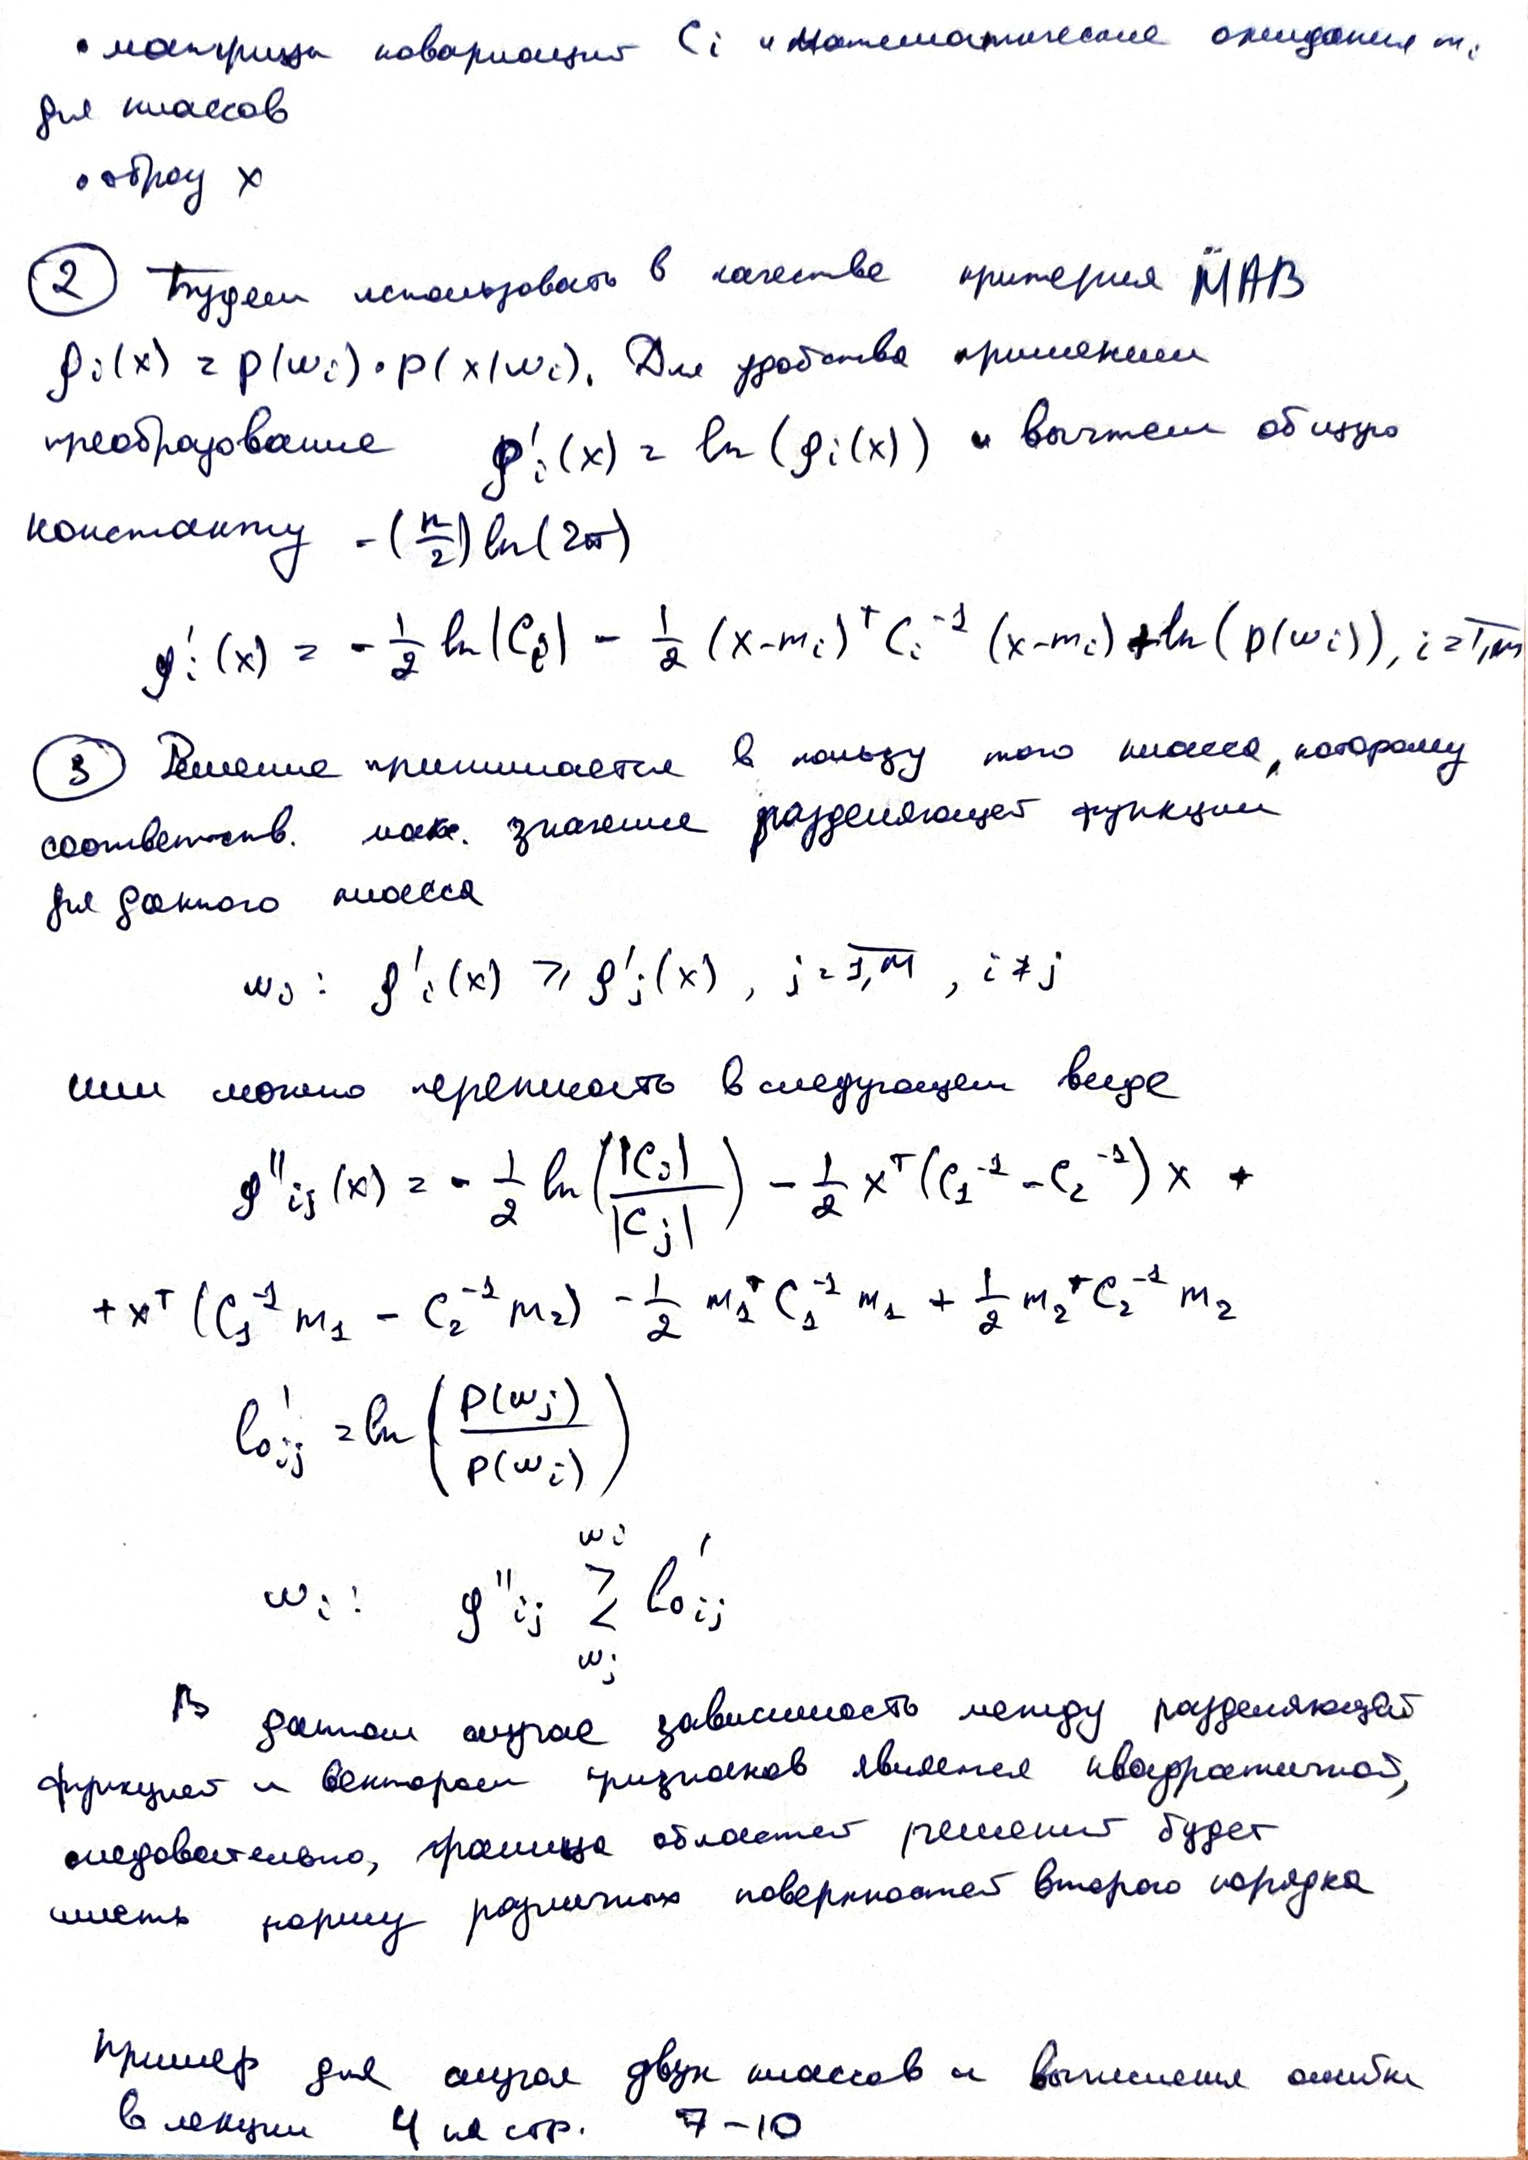 • матрицы ковариаций Cᵢ и математические ожидания mᵢ
для классов
• образ x
② Будем использовать в качестве критерия МАВ
gᵢ(x) = p(wᵢ)·p(x/wᵢ). Для удобства применим
преобразование g'ᵢ(x) = ln(gᵢ(x)) и вычтем общую
константу -(n/2)ln(2π)
g'ᵢ(x) = -1/2 ln|Cᵢ| - 1/2 (x-mᵢ)ᵀ Cᵢ⁻¹ (x-mᵢ) + ln(p(wᵢ)), i = 1,m
③ Решение принимается в пользу того класса, которому
соответств. макс. значение разделяющей функции
для данного класса
wᵢ: g'ᵢ(x) ⩾ g'ⱼ(x), j = 1,M, i ≠ j
или можно переписать в следующем виде
g''ᵢⱼ(x) = -1/2 ln(|Cᵢ|/|Cⱼ|) - 1/2 xᵀ(C₁⁻¹ - C₂⁻¹) x +
+ xᵀ (C₁⁻¹ m₁ - C₂⁻¹ m₂) - 1/2 m₁ᵀ C₁⁻¹ m₁ + 1/2 m₂ᵀ C₂⁻¹ m₂
l₀'ᵢⱼ = ln(p(wⱼ)/p(wᵢ))
wᵢ
wᵢ: g''ᵢⱼ ≷ l₀'ᵢⱼ
wⱼ
В данном случае зависимость между разделяющей
функцией и вектором признаков является квадратичной,
следовательно, граница областей решений будет
иметь форму различных поверхностей второго порядка
Пример для случая двух классов и вычисления ошибки
в лекции 4 на стр. 7-10